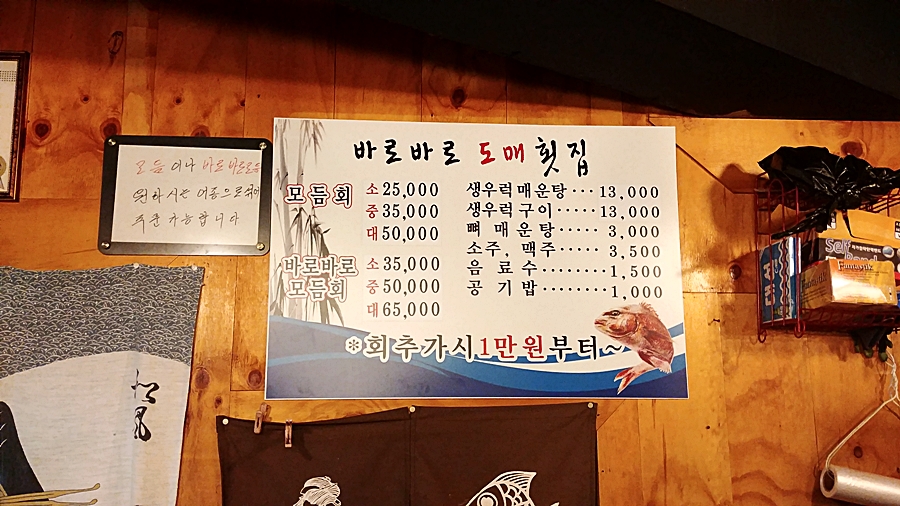 바로바로 도매 횟집
모듬회 소 25,000
중 35,000
대 50,000
바로바로 모듬회 소 35,000
중 50,000
대 65,000
생우럭매운탕···13,000
생우럭구이·····13,000
뼈 매 운 탕····3,000
소주, 맥주·····3,500
음 료 수········1,500
공 기 밥········1,000
*회추가시1만원부터~
모듬 이나 바로바로모듬
원하시는 어종으로 섞어
주문가능합니다
松風
Self